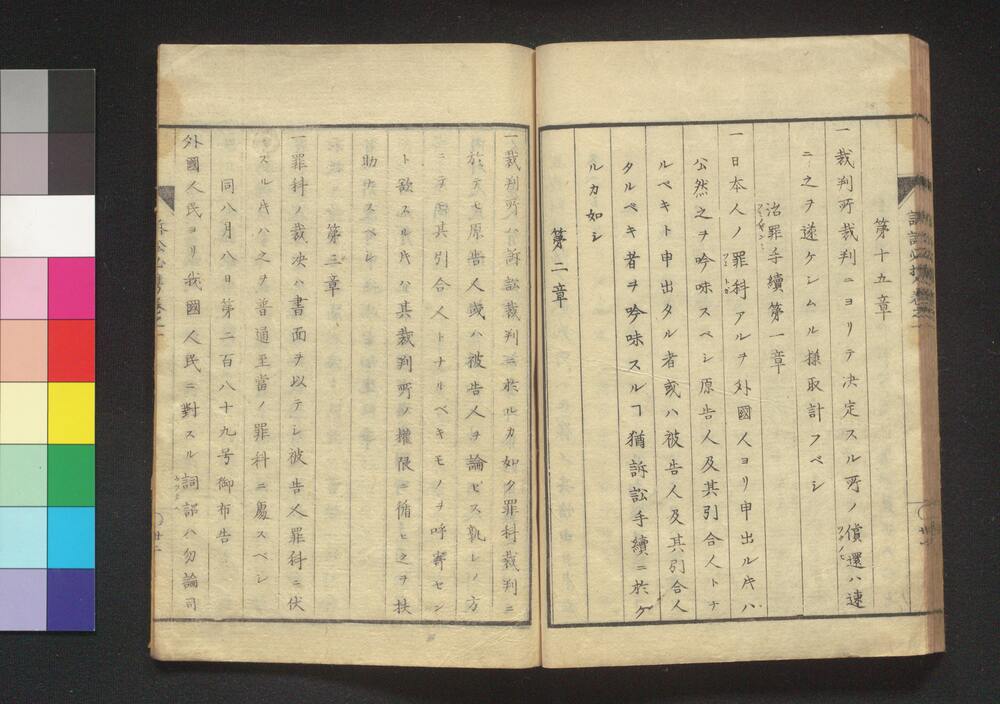 第十五章
一裁判所裁判ニヨリテ決定スル所ノ償還ハ速
ニ之ヲ遂ケシムル様取計フベシ
治罪手續第一章
一日本人ノ罪科アルヲ外國人ヨリ申出ル片ハ
公然之ヲ吟味スベシ原告人及其引合人トナ
ルベキト申出タル者或ハ被告人及其引合人
タルベキ者ヲ吟味スルヿ猶訴訟手續ニ於ケ
ルカ如シ
第二章
一裁判所ハ訴訟裁判ニ於ルカ如ク罪科裁判ニ
於テモ原告人或ハ被告人ヲ論ゼス孰レノ方
ニテモ其引合人トナルベキモノヲ呼寄セン
ト欲スル片ハ其裁判所ノ權限ニ循ヒ之ヲ扶
助スベシ
第三章
一罪科ノ裁決ハ書面ヲ以テシ被告人罪科ニ伏
スル片ハ之ヲ普通至當ノ罪科ニ處スベシ
同八月八日第二百八十九号御布告
外國人民ヨリ我國人民ニ對スル詞訟ハ勿論司